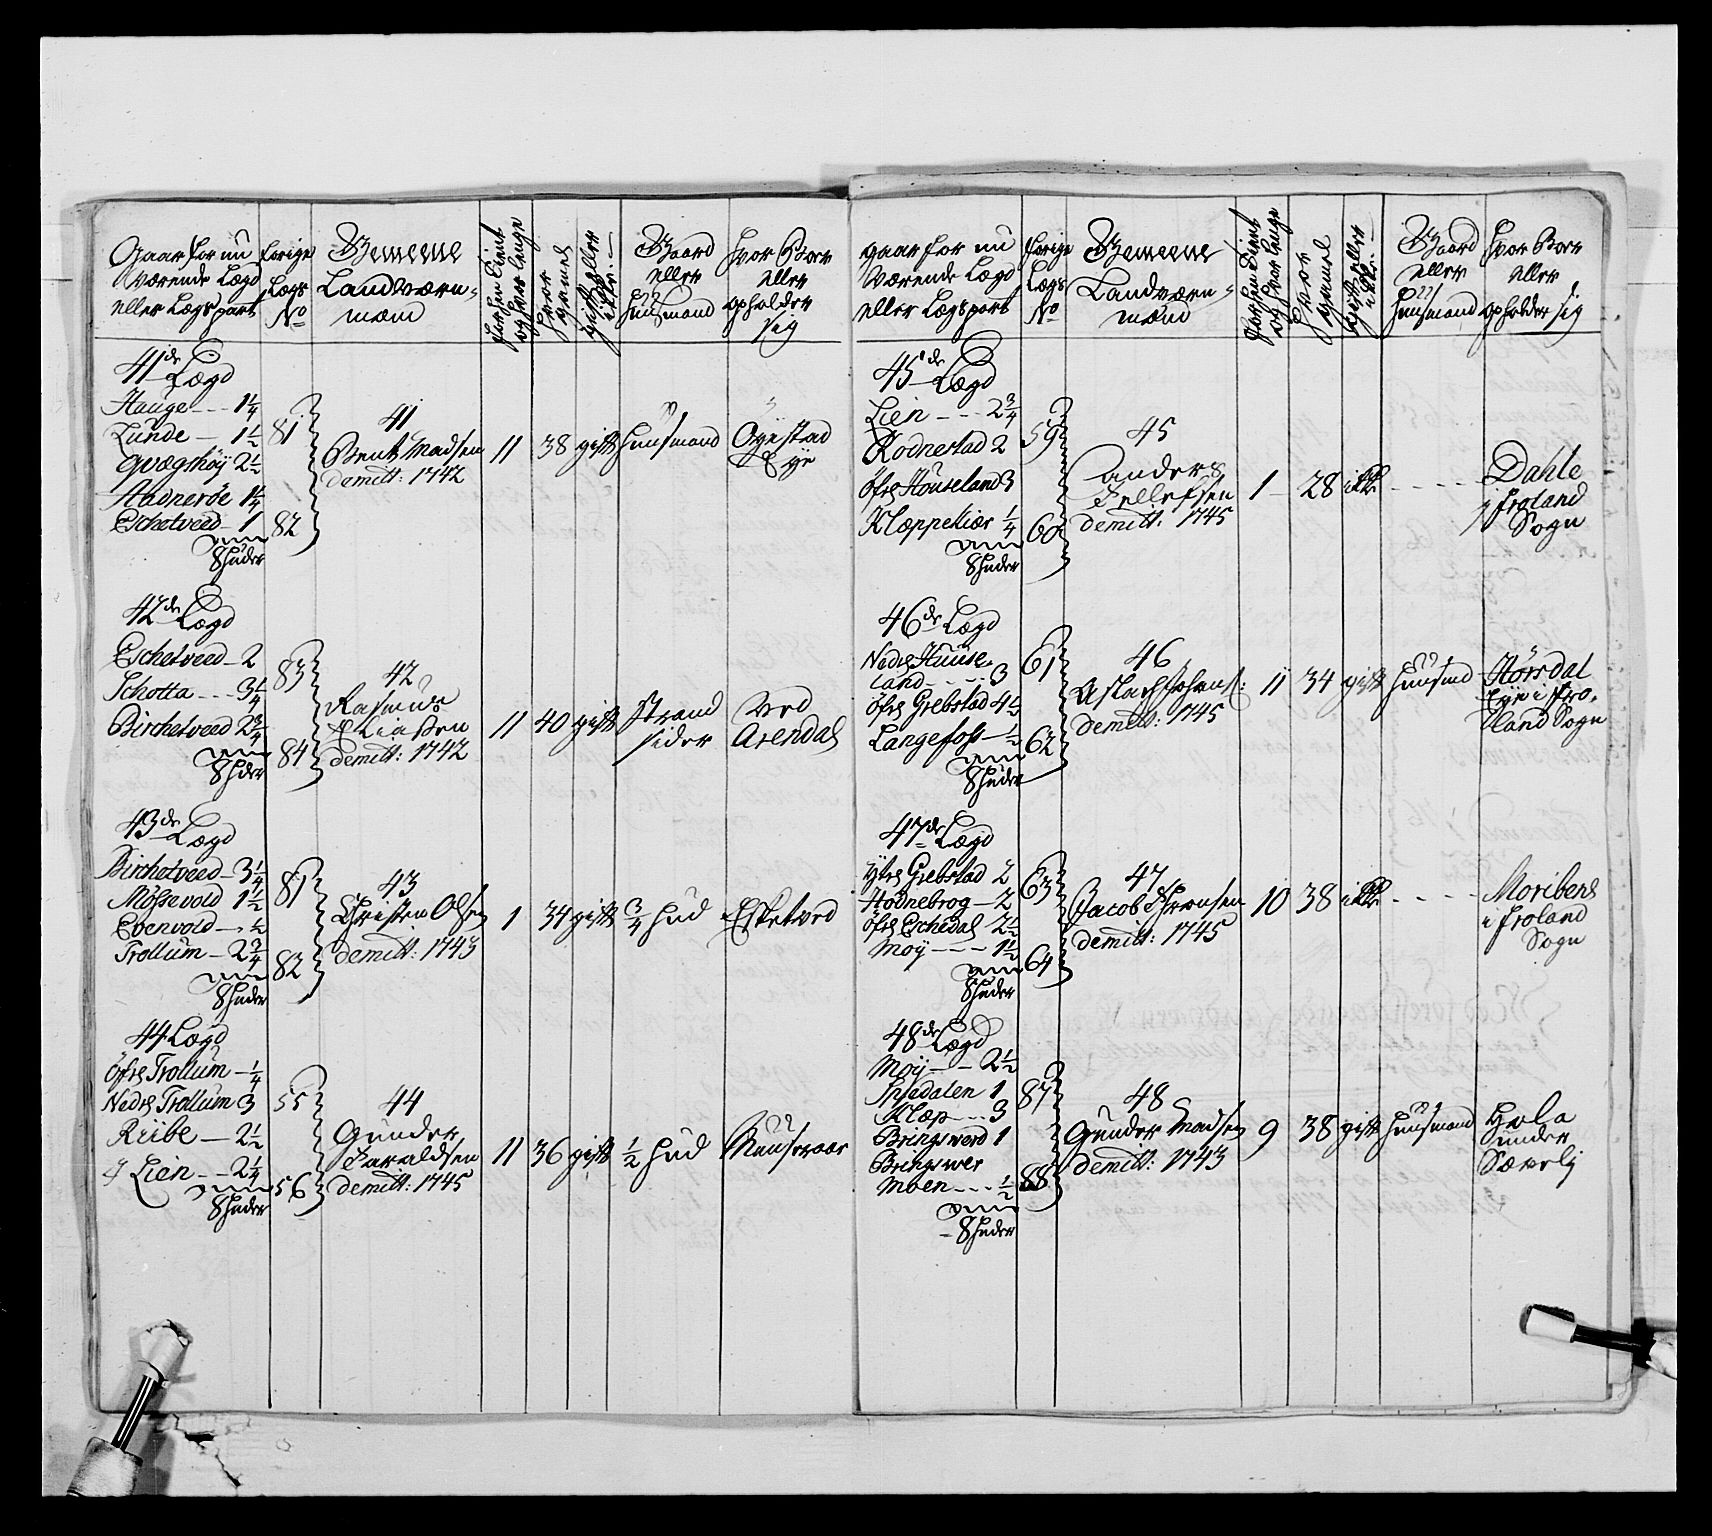 Gaar for nu
Værende Lægd
eller Lægs part
forige
Lægs
No
Gemeene
Landværn-
mænd
forhen tient
og hvor lenge
Hvor
gamel
gift eller
ikke
Gaard
eller
Huusmand
hvor Boer
eller
opholder
sig
41de Lægd
Hauge --- 1 1/4
Lunde -- 1 1/2
Qvægshøÿ 2 1/2
Aadnerøe 1 1/4
Eschetveed - 1
8 huder
81
82
41
Bent Madsen
demitt: 1742
11
38
gift
huusmand
Öÿestad
Eÿe
42de Lægd
Eschetveed - 2
Schotta --- 3 1/4
Birchetveed 2 3/4
8 huder
83
84
42
Rasmus
Eliassen
demitt: 1742
11
40
gift
Strand
sider
Ved
Arendal
43de Lægd
Birchetveed - 3 1/4
Mössevold 1 1/2
Evenvold - 1/2
Trollum - 2 3/4
8 huder
81
82
43
Christen Olsen
demitt: 1743
1
34
gift
3/4 hud
Esketved
44 Lægd
Öfre Trollum - 1/4
Nedre Trollum 3
Riibe -- 2 1/2
Lien -- 2 1/4
8 huder
55
56
44
Gunder
Haraldsen
demitt: 1745
11
36
gift
1/2 hud
gaar for nu
Værende Lægd
eller Lægs part
forige
Lægs
No
Gemeene
Landværn-
mænd
forhen tient
og hvor lenge
Hvor
gamel
gift eller
ikke
Gaard
eller
Huusmand
hvor Boer
eller
opholder sig
45de Lægd
Lien --- 2 3/4
Rodnestad 2
Öfre Hauseland 3
Klæppekiær 1/4
8 huder
59
60
45
Anders
Tellefsen
demitt: 1745
1
28
ikke
----
Dahle
i froland
Sogn
46de Lægd
Nedre Hause-
land ---- 3
Öfre Grebstad 4 1/2
Langefoss - 1/2
8 huder
61
62
46
Aslach Johans:
demitt: 1745
11
34
gift
huusmd
Hørsdal
Eÿe i fro-
land Sogn
47de Lægd
Ÿtre Grebstad 2
Hodnebrog - 2
Öfre Eschedal 2 1/2
Moÿ --- 1 1/2
8 huder
63
64
47
Jacob
demitt: 1745
10
38
ikke
----
i froland
Sogn
48de Lægd
Moÿ -- 2 1/2
Klæp --- 3
Bringsverd 1
Bringsver
Moen --- 1/2
8 huder
87
88
48
Gunder Madsen
demitt: 1743
9
38
gift
huusmand
under